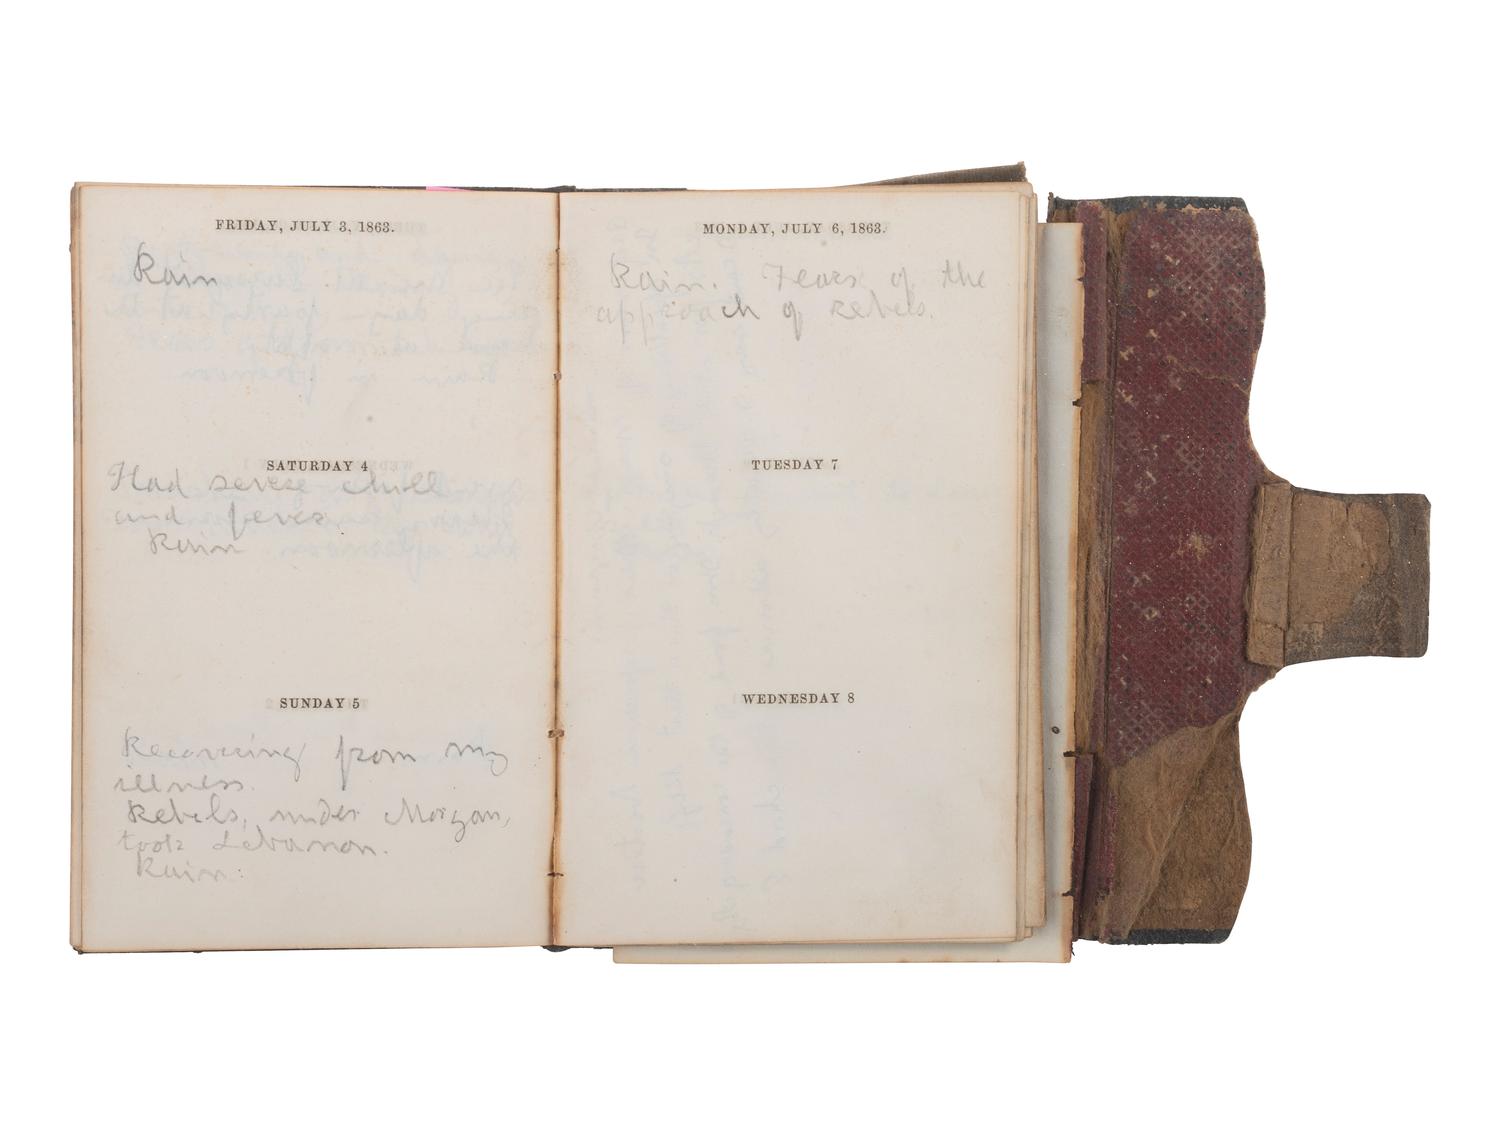 FRIDAY, JULY 3, 1863.
Rain
SATURDAY 4
Had severe chill
and fever
Rain
SUNDAY 5
Recovering from my
illness.
Rebels, under Morgan,
took Lebanon.
Rain.
MONDAY, JULY 6, 1863.
Rain. Fears of the
approach of rebels.
TUESDAY 7
WEDNESDAY 8